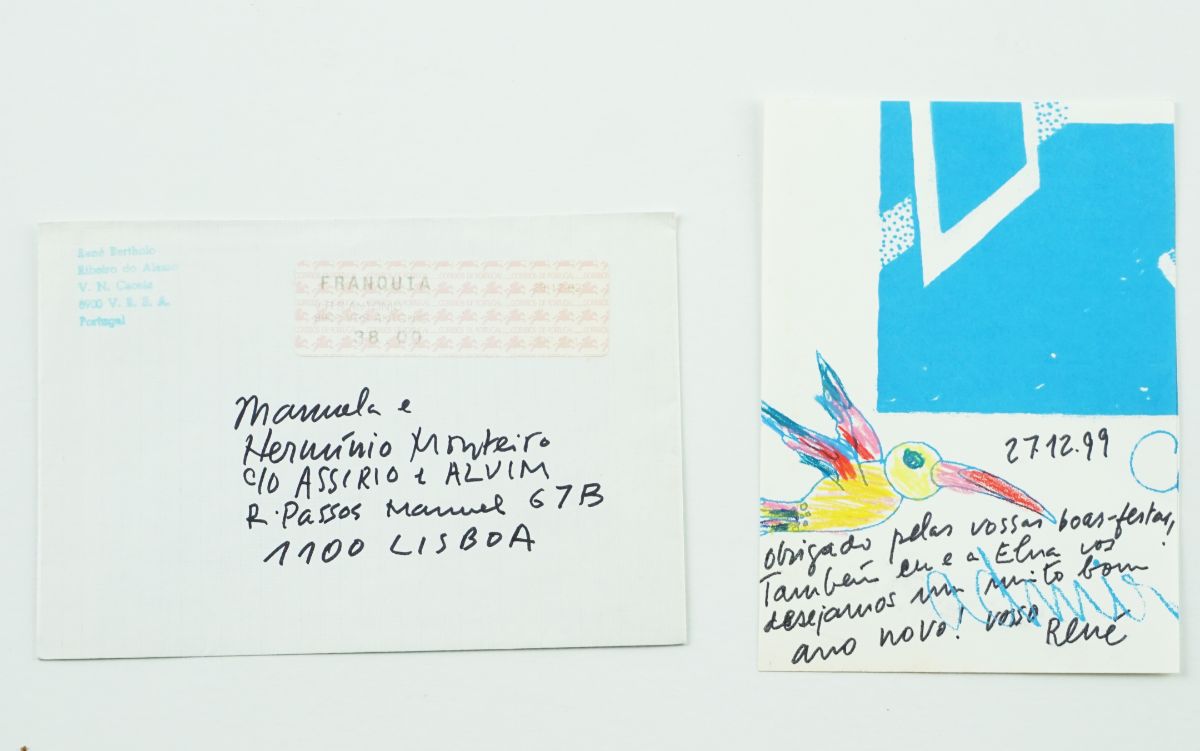 René Bertholo
Ribeiro do Alamo
V. N. Cacela
8900 V. R. S. A.
Portugal
FRANQUIA
38 00
Manuela e
Hermínio Monteiro
c/o ASSIRIO e ALVIM
R. Passos Manuel 67B
1100 LISBOA
27.12.99
obrigado pelas vossas boas-festas,
Também eu e a Elna vos
desejamos um muito bom
ano novo! vosso
René